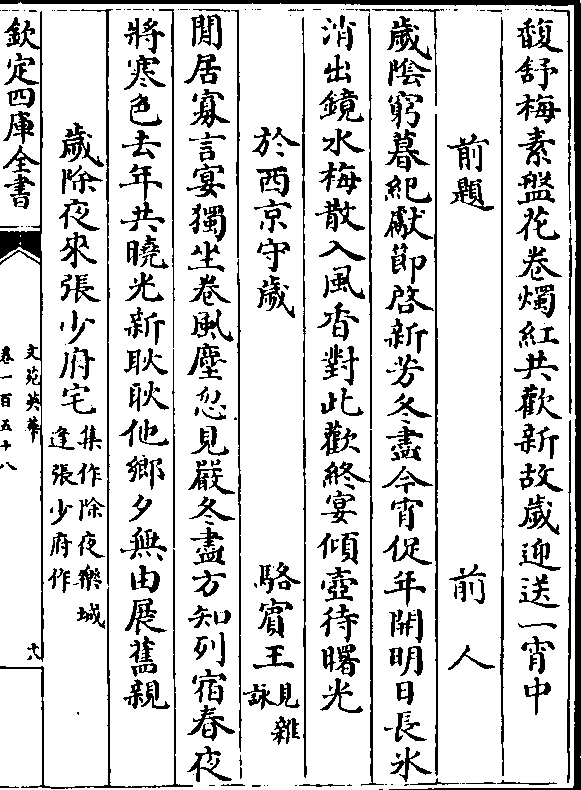 馥舒梅素盤花卷燭紅共歡新故歲迎送一宵中
前題　前人
歲陰窮暮紀獻節啓新芳冬盡今宵促年開明日長氷
消出鏡水梅散入風香對此歡終宴傾壺待曙光
於西京守歲　駱賓王見雜詠
閒居寡言宴獨坐卷風塵忽見嚴冬盡方知列宿春夜
將寒色去年共曉光新耿耿他鄉夕無由展舊親
歲除夜來張少府宅集作除夜樂城逢張少府作
欽定四庫全書
文苑英華
卷一百五十八